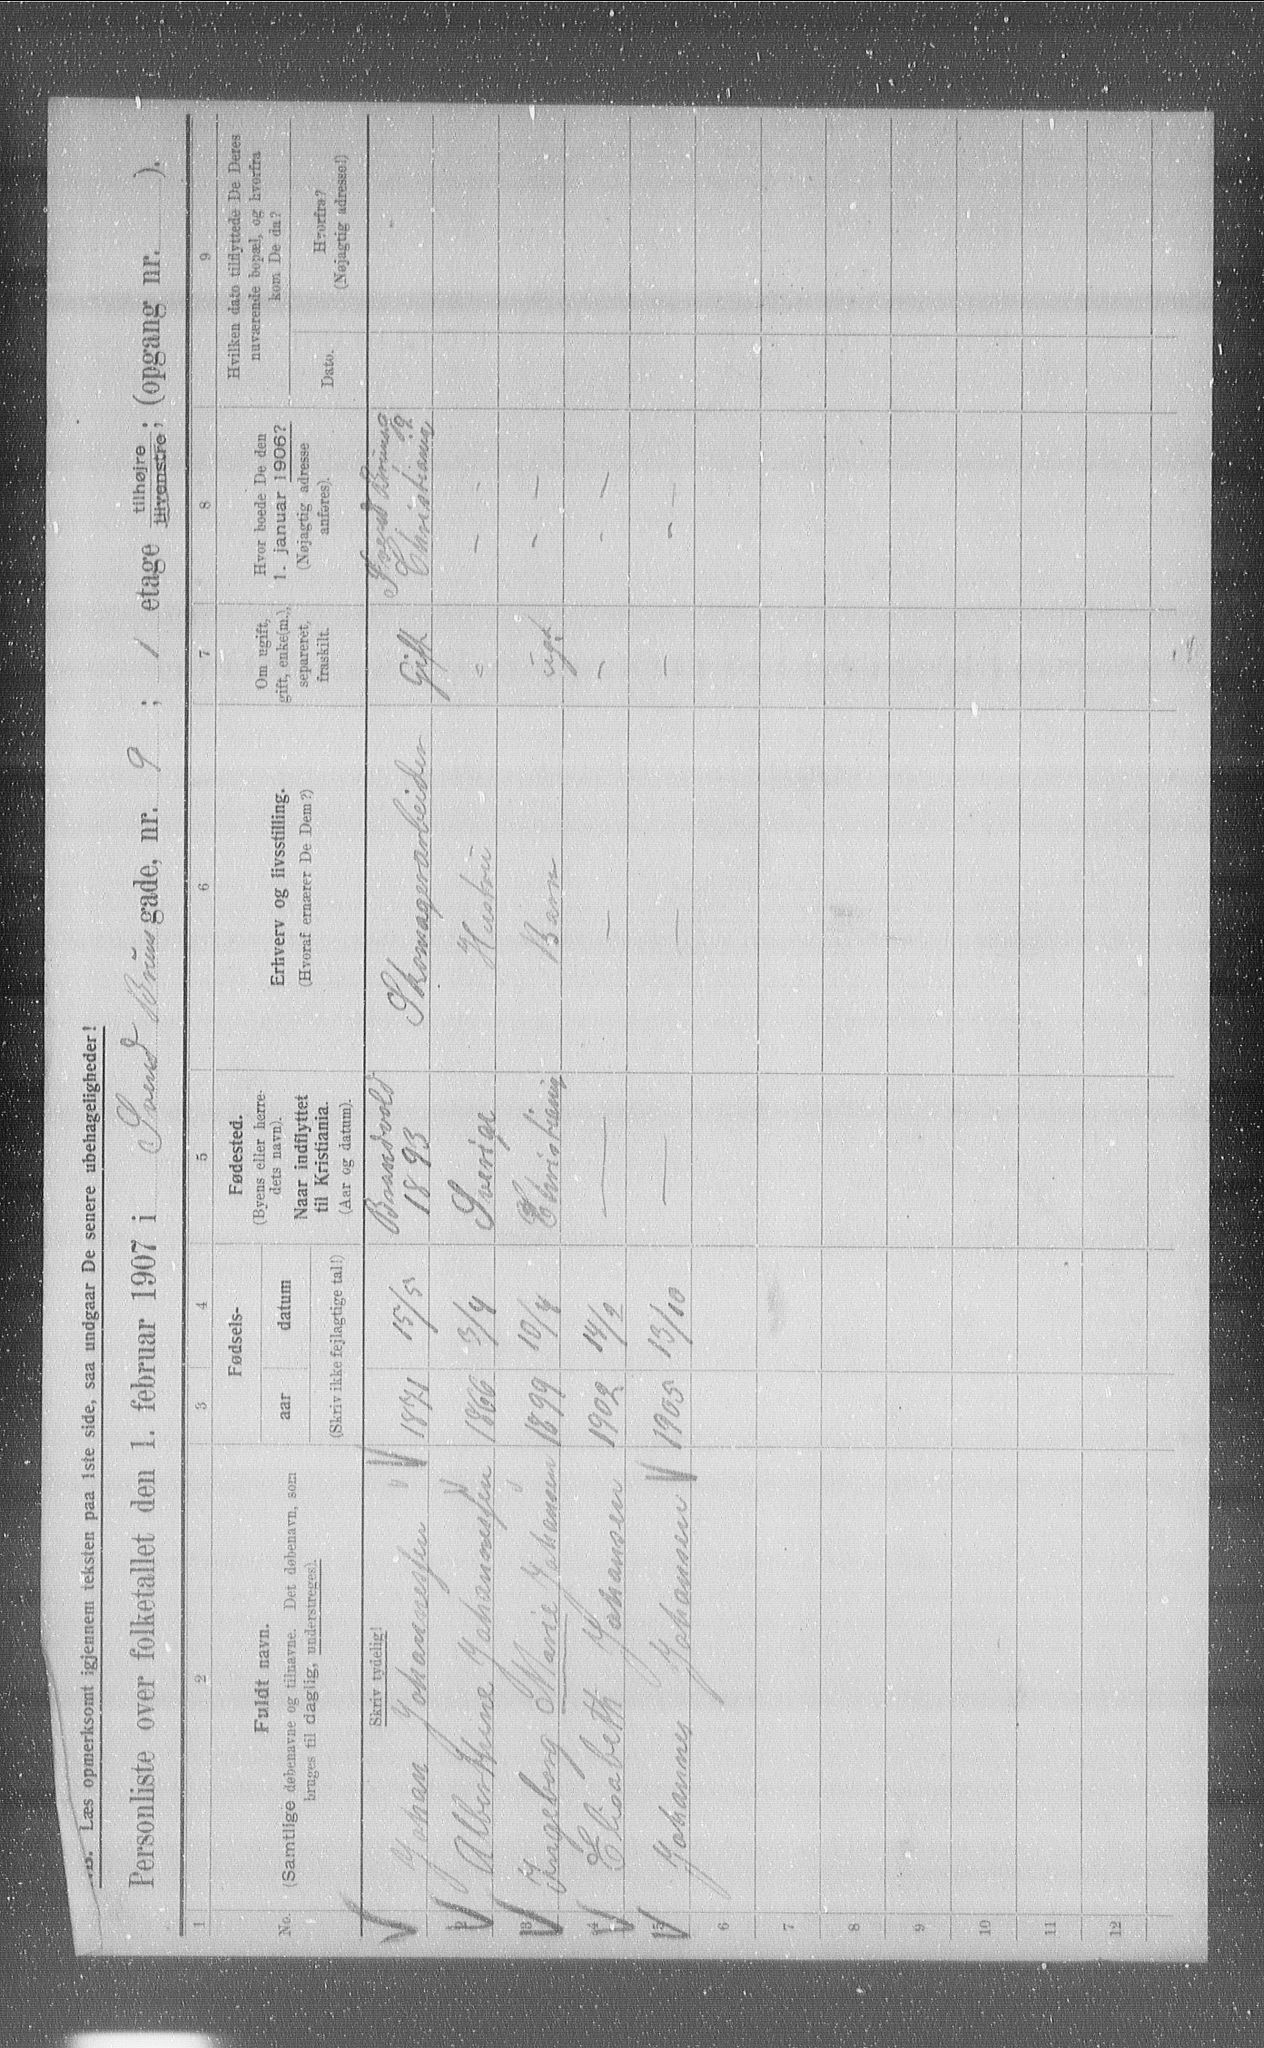 N.B. Læs opmerksomt igjennem teksten paa 1ste side, saa undgaar De senere ubehageligheder!
Personliste over folketallet den 1. februar 1907 i Svend Bruns gade, nr. 9 ; 1 etage tilhøjre tilvenstre ; (opgang nr. ).
1 2 3 4 5 6 7 8 9
No.
Fuldt navn.
(Samtlige døbenavne og tilnavne. Det døbenavn, som
bruges til daglig, understreges).
Fødsels-
aar datum
(Skriv ikke fejlagtige tal!)
Fødested.
(Byens eller herre-
dets navn).
Naar indflyttet
til Kristiania.
(Aar og datum).
Erhverv og livsstilling.
(Hvoraf ernærer De Dem?)
Om ugift,
gift, enke(m.),
separeret,
fraskilt.
Hvor boede De den
1. januar 1906?
(Nøjagtig adresse
anføres).
Hvilken dato tilflyttede De Deres
nuværende bopæl, og hvorfra
kom De da?
Dato.
Hvorfra?
(Nøjagtig adresse!)
Skriv tydelig!
Johan Johannessen 1871 15/5 Brandvold 1893 Skomagerarbeider Gift Svend Brunsg 9 Christiania
2 Albertine Johannessen 1866 3/4 Sverige Hustru " - -
3 Ingeborg Marie Johansen 1899 10/4 Christiania Barn ugift - -
4 Elisabeth Johansen 1902 14/2 — — - - -
5 Johannes Johansen 1905 13/10 — — - - -
6
7
8
9
10
11
12